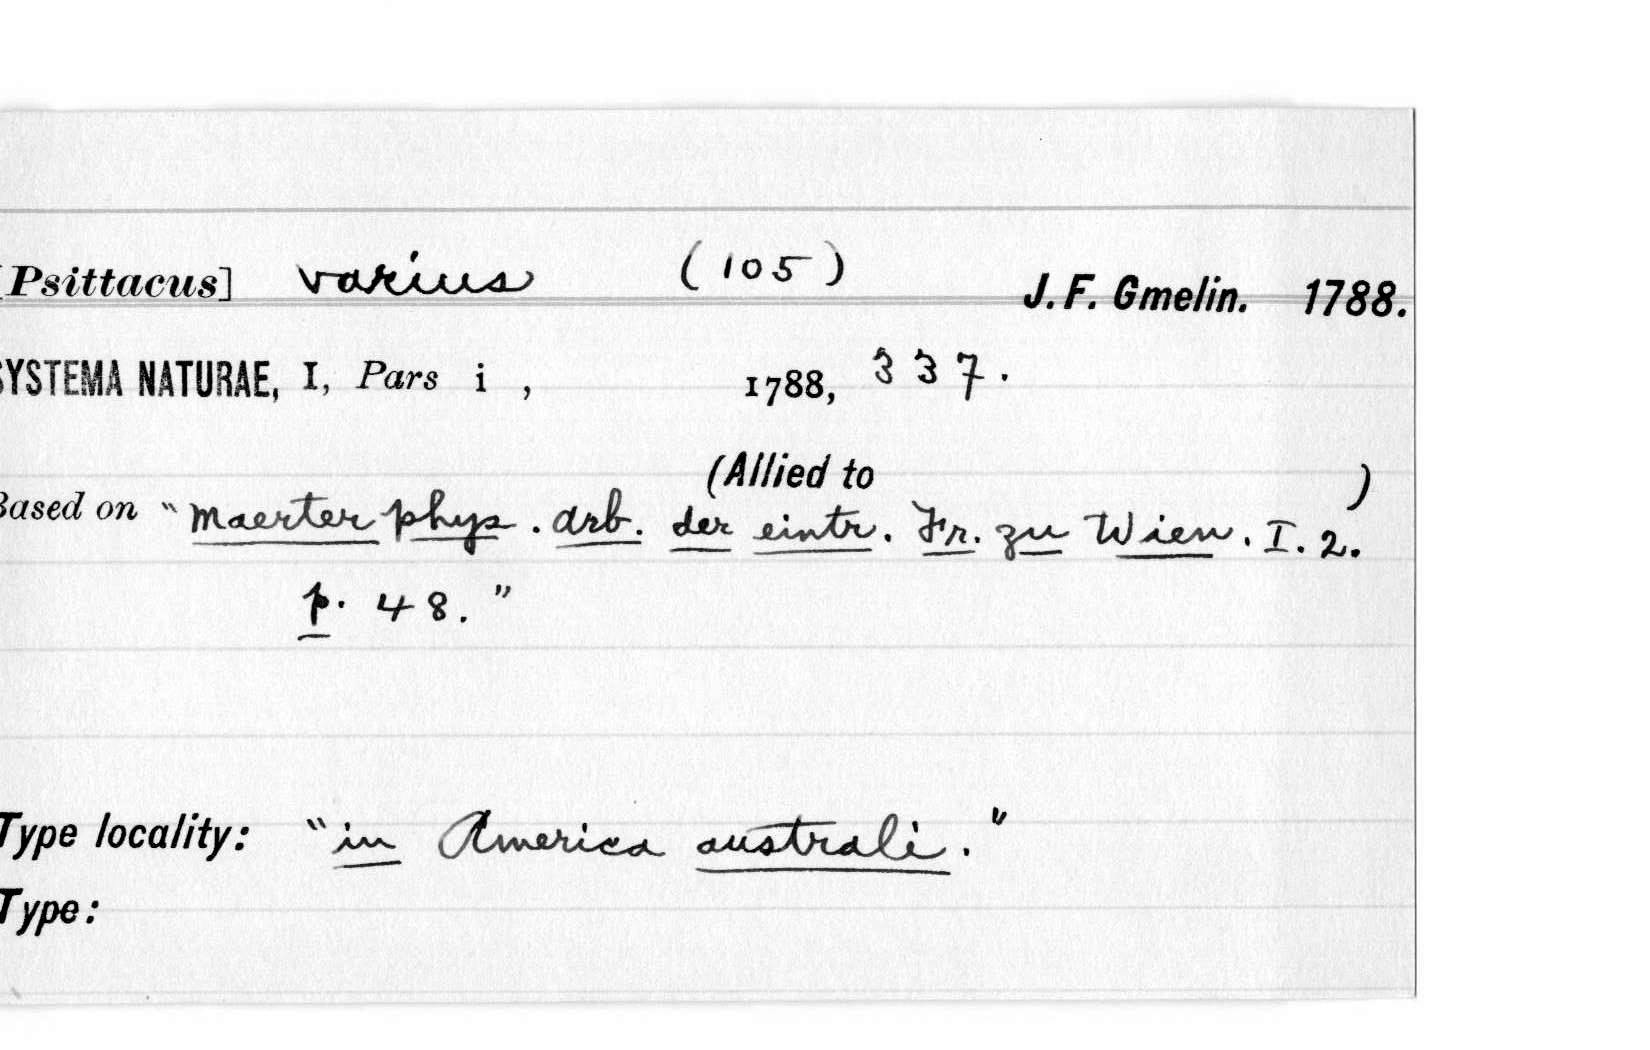 [Psittacus] varius (105) J. F. Gmelin. 1788.
SYSTEMA NATURAE, I, Pars i , 1788, 337.
(Allied to )
Based on "Maerter phys. arb. der eintr. Fr. zu Wien. I. 2.
p. 48."
Type locality: "in America australi."
Type: